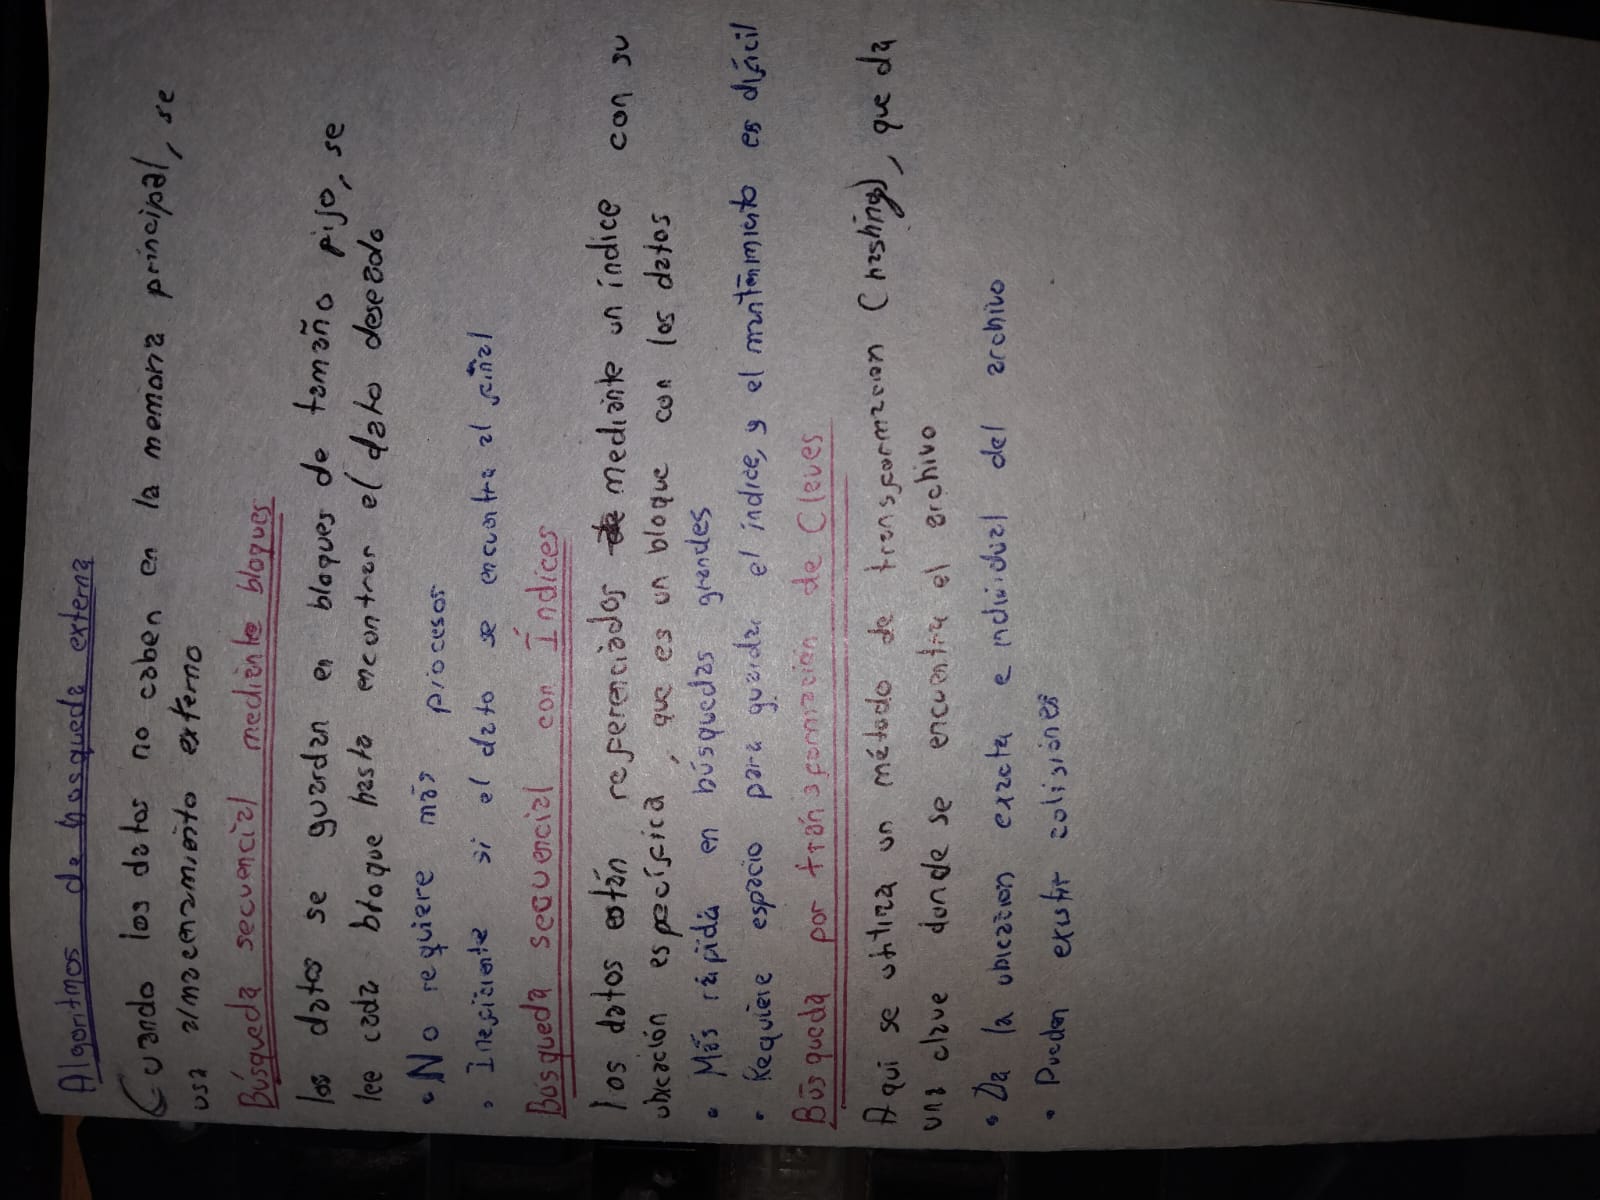 Algoritmos de busqueda externa
Cuando los datos no caben en la memoria principal, se
usa almacenamiento externo
Búsqueda secuencial mediante bloques
los datos se guardan en bloques de tamaño fijo, se
lee cada bloque hasta encontrar el dato deseado
• No requiere más procesos
• Ineficiente si el dato se encuentra al final
Búsqueda secuencial con Índices
los datos están referenciados de mediante un índice con su
ubicación específica, que es un bloque con los datos
• Más rápida en búsquedas grandes
• Requiere espacio para guardar el índice, y el mantenimiento es difícil
Búsqueda por transformación de Claves
Aqui se utiliza un método de transformacion (hashing), que da
una clave donde se encuentra el archivo
• Da la ubicacion exacta e individual del archivo
• Pueden existir colisiones